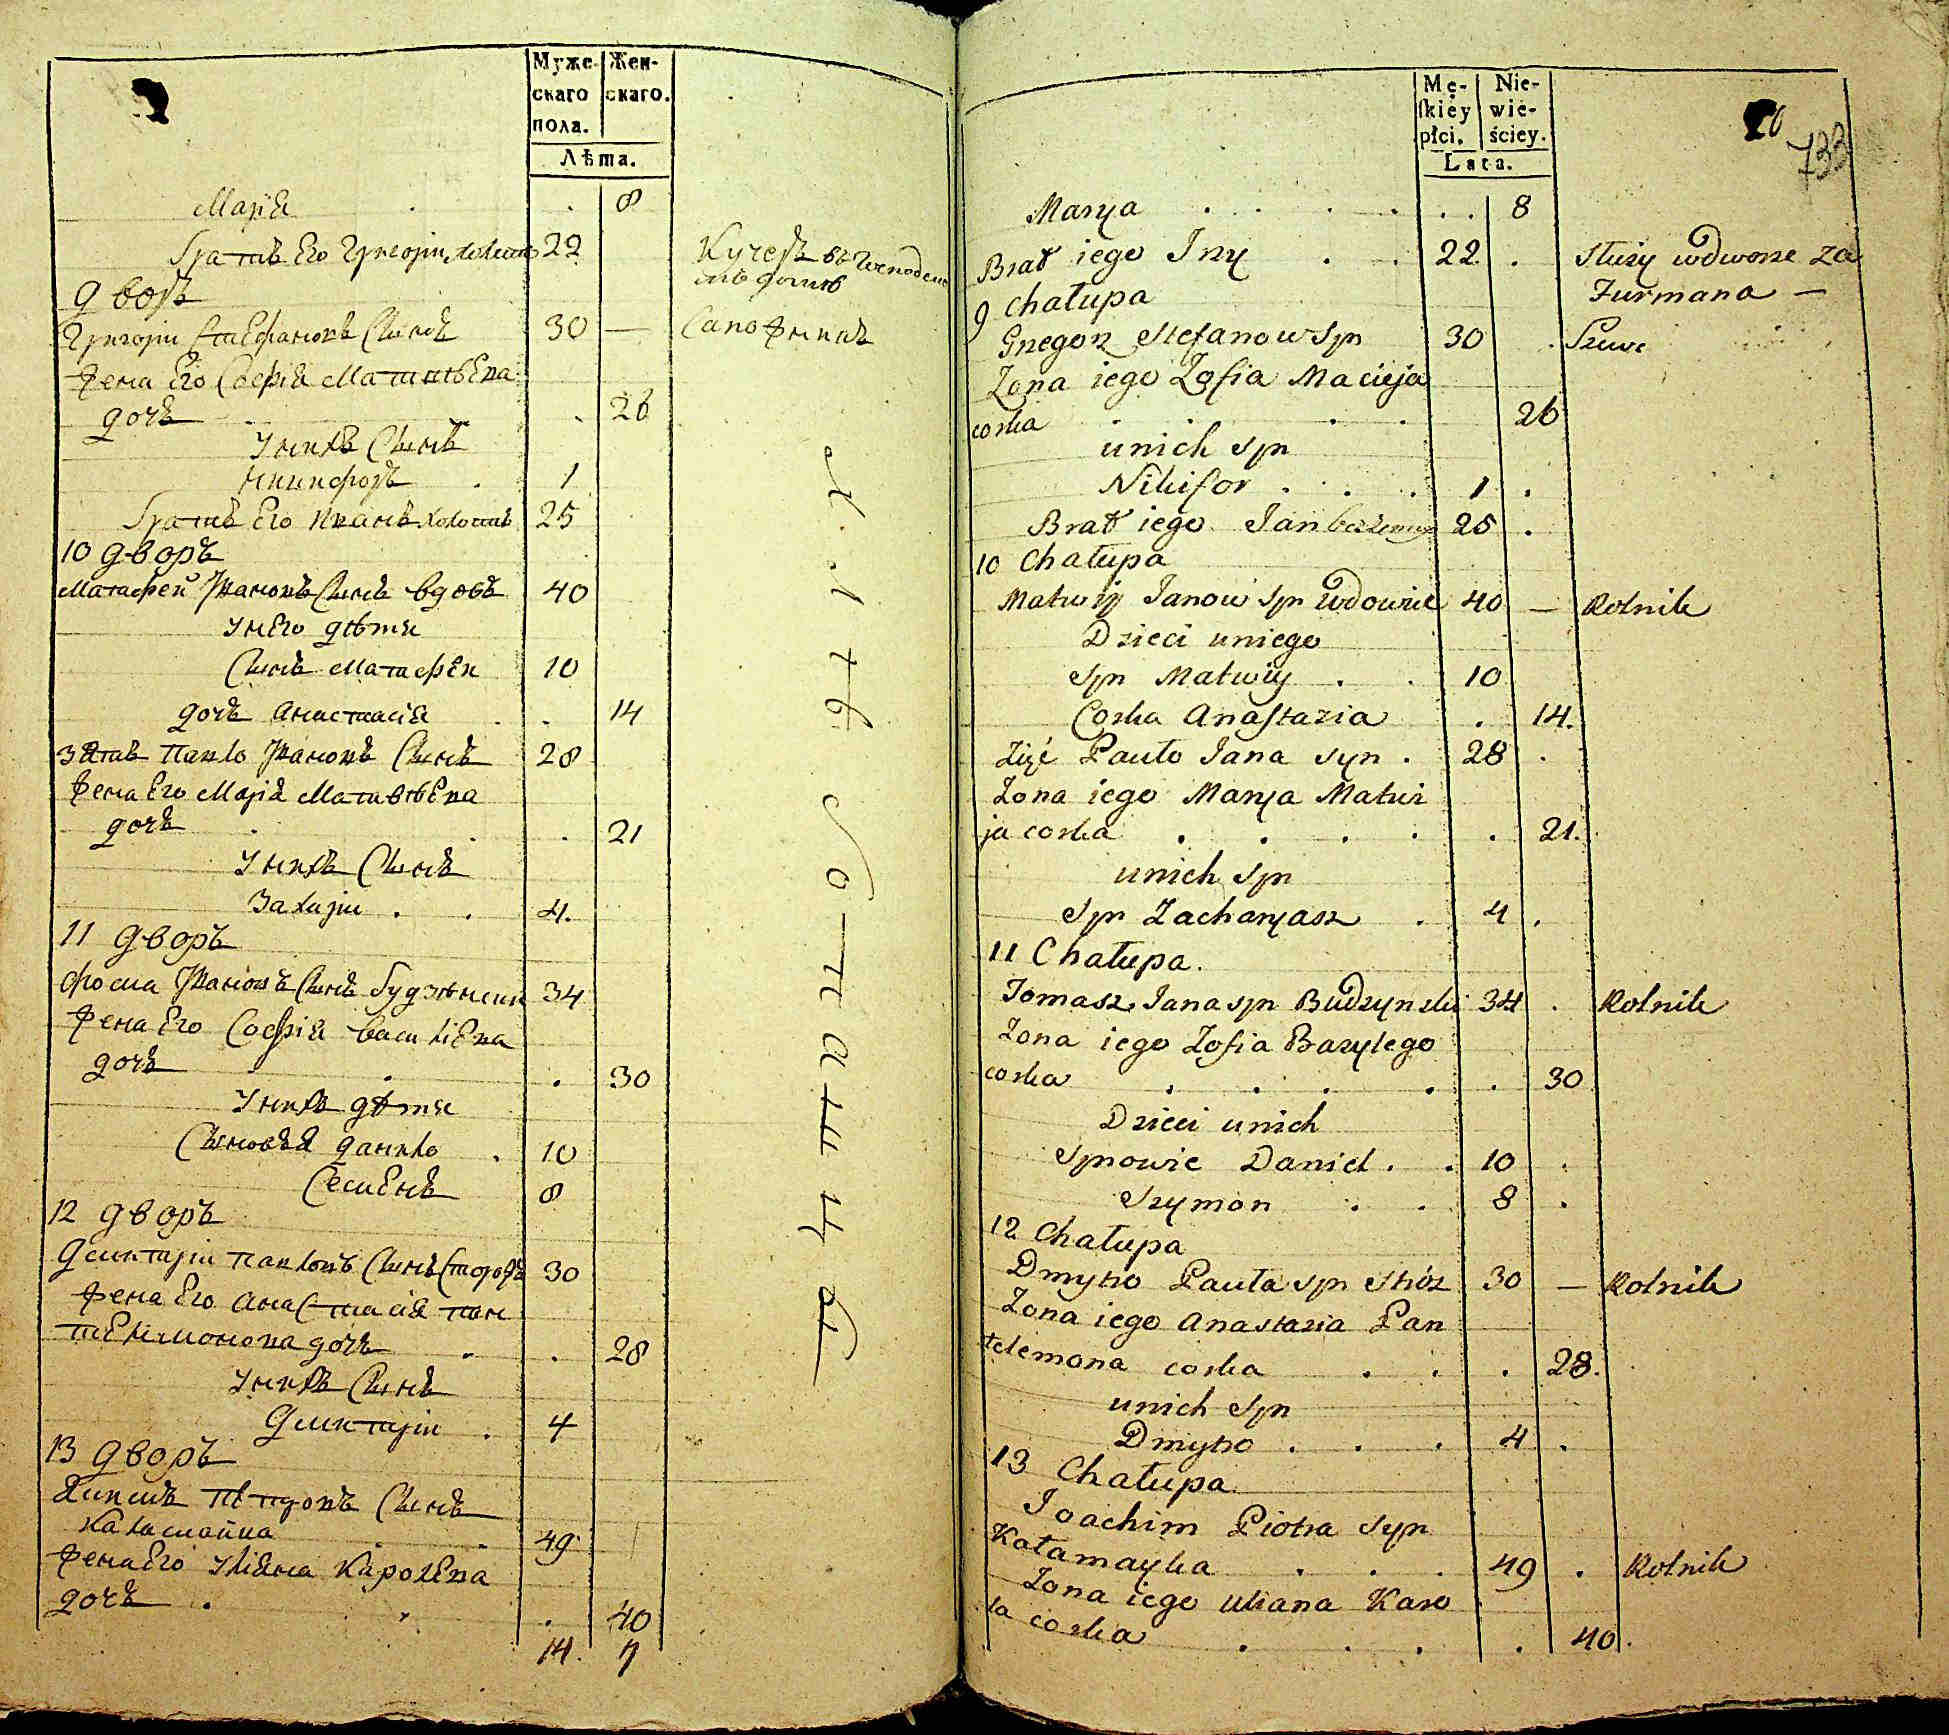 Муже-
скаго
пола.
Жен-
скаго.
Лѣта.
Марія . . 8
Братъ Его Григорій холостъ 22
Кучеръ въ
домѣ
9 дворъ
Григорій Стефановъ Сынъ 30 —
Сапожникъ
Жена Его Софія Матвѣева
дочь . . 26
У нихъ Сынъ
Никифоръ . 1
Братъ Его Иванъ холостъ 25
10 дворъ
Матфей Ивановъ Сынъ вдовъ 40
У него дѣти
Сынъ Матфей 10
дочь Анастасія . . 14
Зять Павло Ивановъ Сынъ 28
Жена Его Марія Матвѣева
дочь . . . 21
У нихъ Сынъ
Захарій . . 4.
11 дворъ
Фома Ивановъ Сынъ 34
Жена Его Софія Василіева
дочь . . . 30
У нихъ дѣти
Сыновья Данило . 10
Семенъ 8
12 дворъ
Дмитрій Павловъ Сынъ Сторожъ 30
Жена Его Анастасія Пан
телимонова дочь . . 28
У нихъ Сынъ
Дмитрій . 4
13 дворъ
Якимъ Петровъ Сынъ
Каламайка . . 49
Жена Его Уліяна Каролева
дочь . . . 40
14. 7
Mę-
skiey
płci.
Nie-
wie-
ściey.
Lata.
733
Marya . . . . . . 8
Brat iego Jrzy . . 22 .
Służy wdworze za
Furmana —
9 Chałupa
Grzegorz Stefanow Syn 30 .
Szewc
Zona iego Zofia Macieja
corka . . . . 26
unich Syn
Nikifor . . . 1 .
Brat iego Jan bezżenny 25 .
10 Chałupa
Matwiy Janow Syn Wdowiec 40 — Rolnik
Dzieci uniego
Syn Matwiy . . 10
Corka Anastazia . 14.
Zięć Pawło Jana syn . 28 .
Zona iego Marya Matwi
ja corka . . . . . 21.
unich Syn
Syn Zacharyasz . 4 .
11 Chałupa.
Tomasz Jana syn Budzynski 34 . Rolnik
Zona iego Zofia Bazylego
corka . . . . . 30
Dzieci unich
Synowie Daniel . . 10 .
Szymon . . 8 .
12 Chałupa
Dmytro Pawła syn Stróz 30 — Rolnik
Zona iego Anastazia Pan
telemona corka . . . 28.
unich Syn
Dmytro . . . 4 .
13 Chałupa
Joachim Piotra Syn
Kałamayka . . . 49 . Rolnik
Zona iego Uliana Karo
la corka . . . . 40.